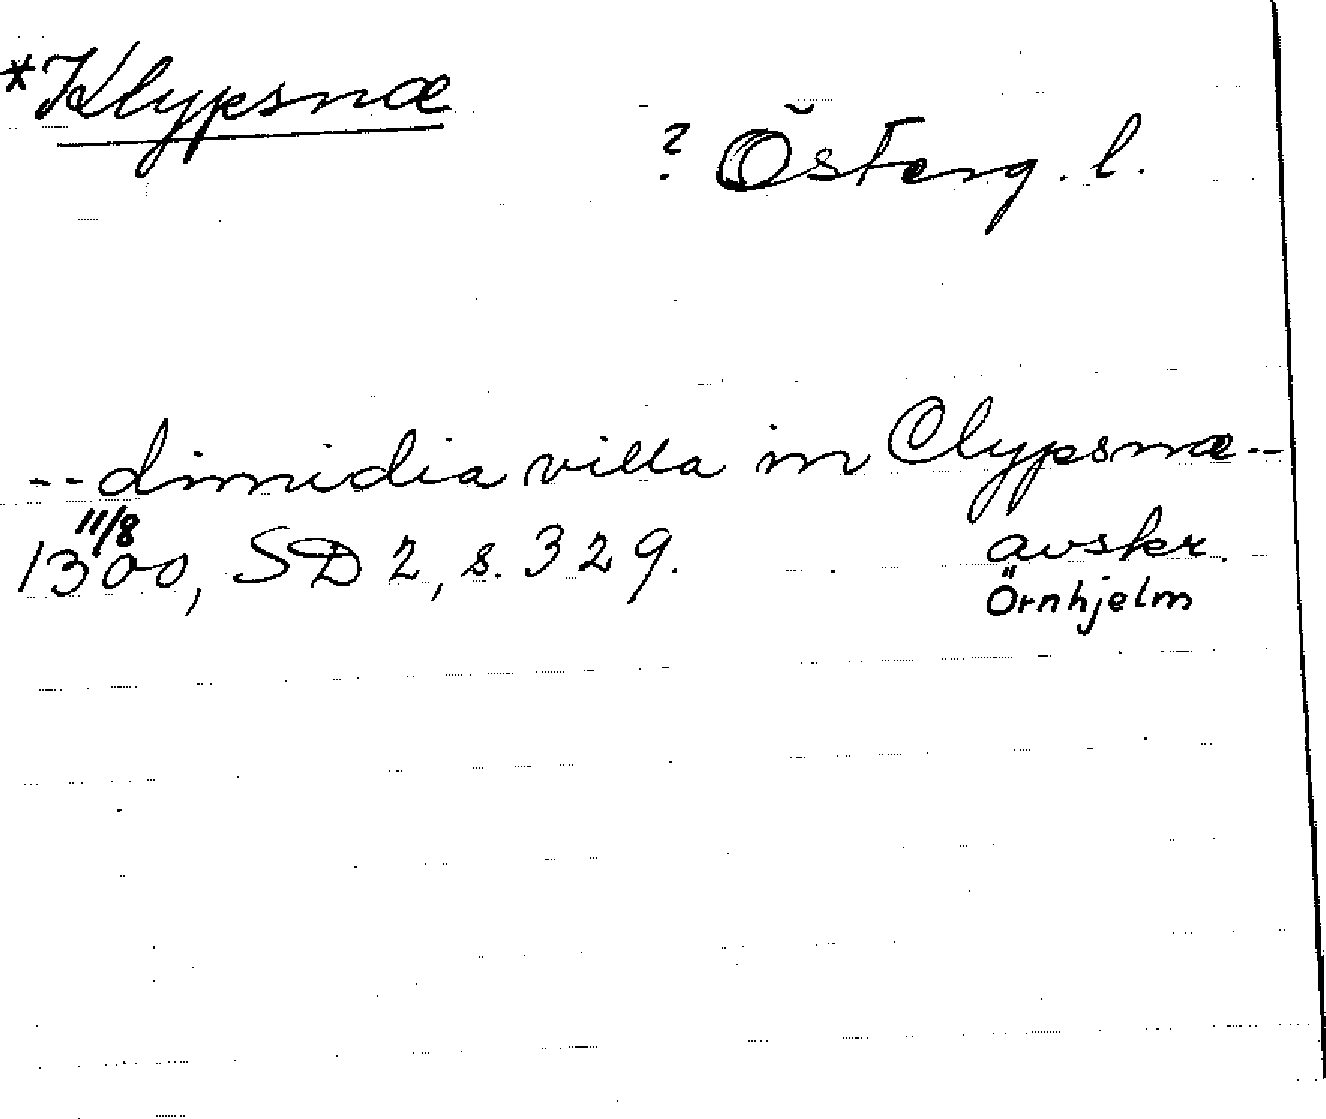 *Klypsnæ
? Österg. l.
-- dimidia villa in Clypsnæ --
11/8
1300, SD 2, s. 329. avskr.
Örnhjelm